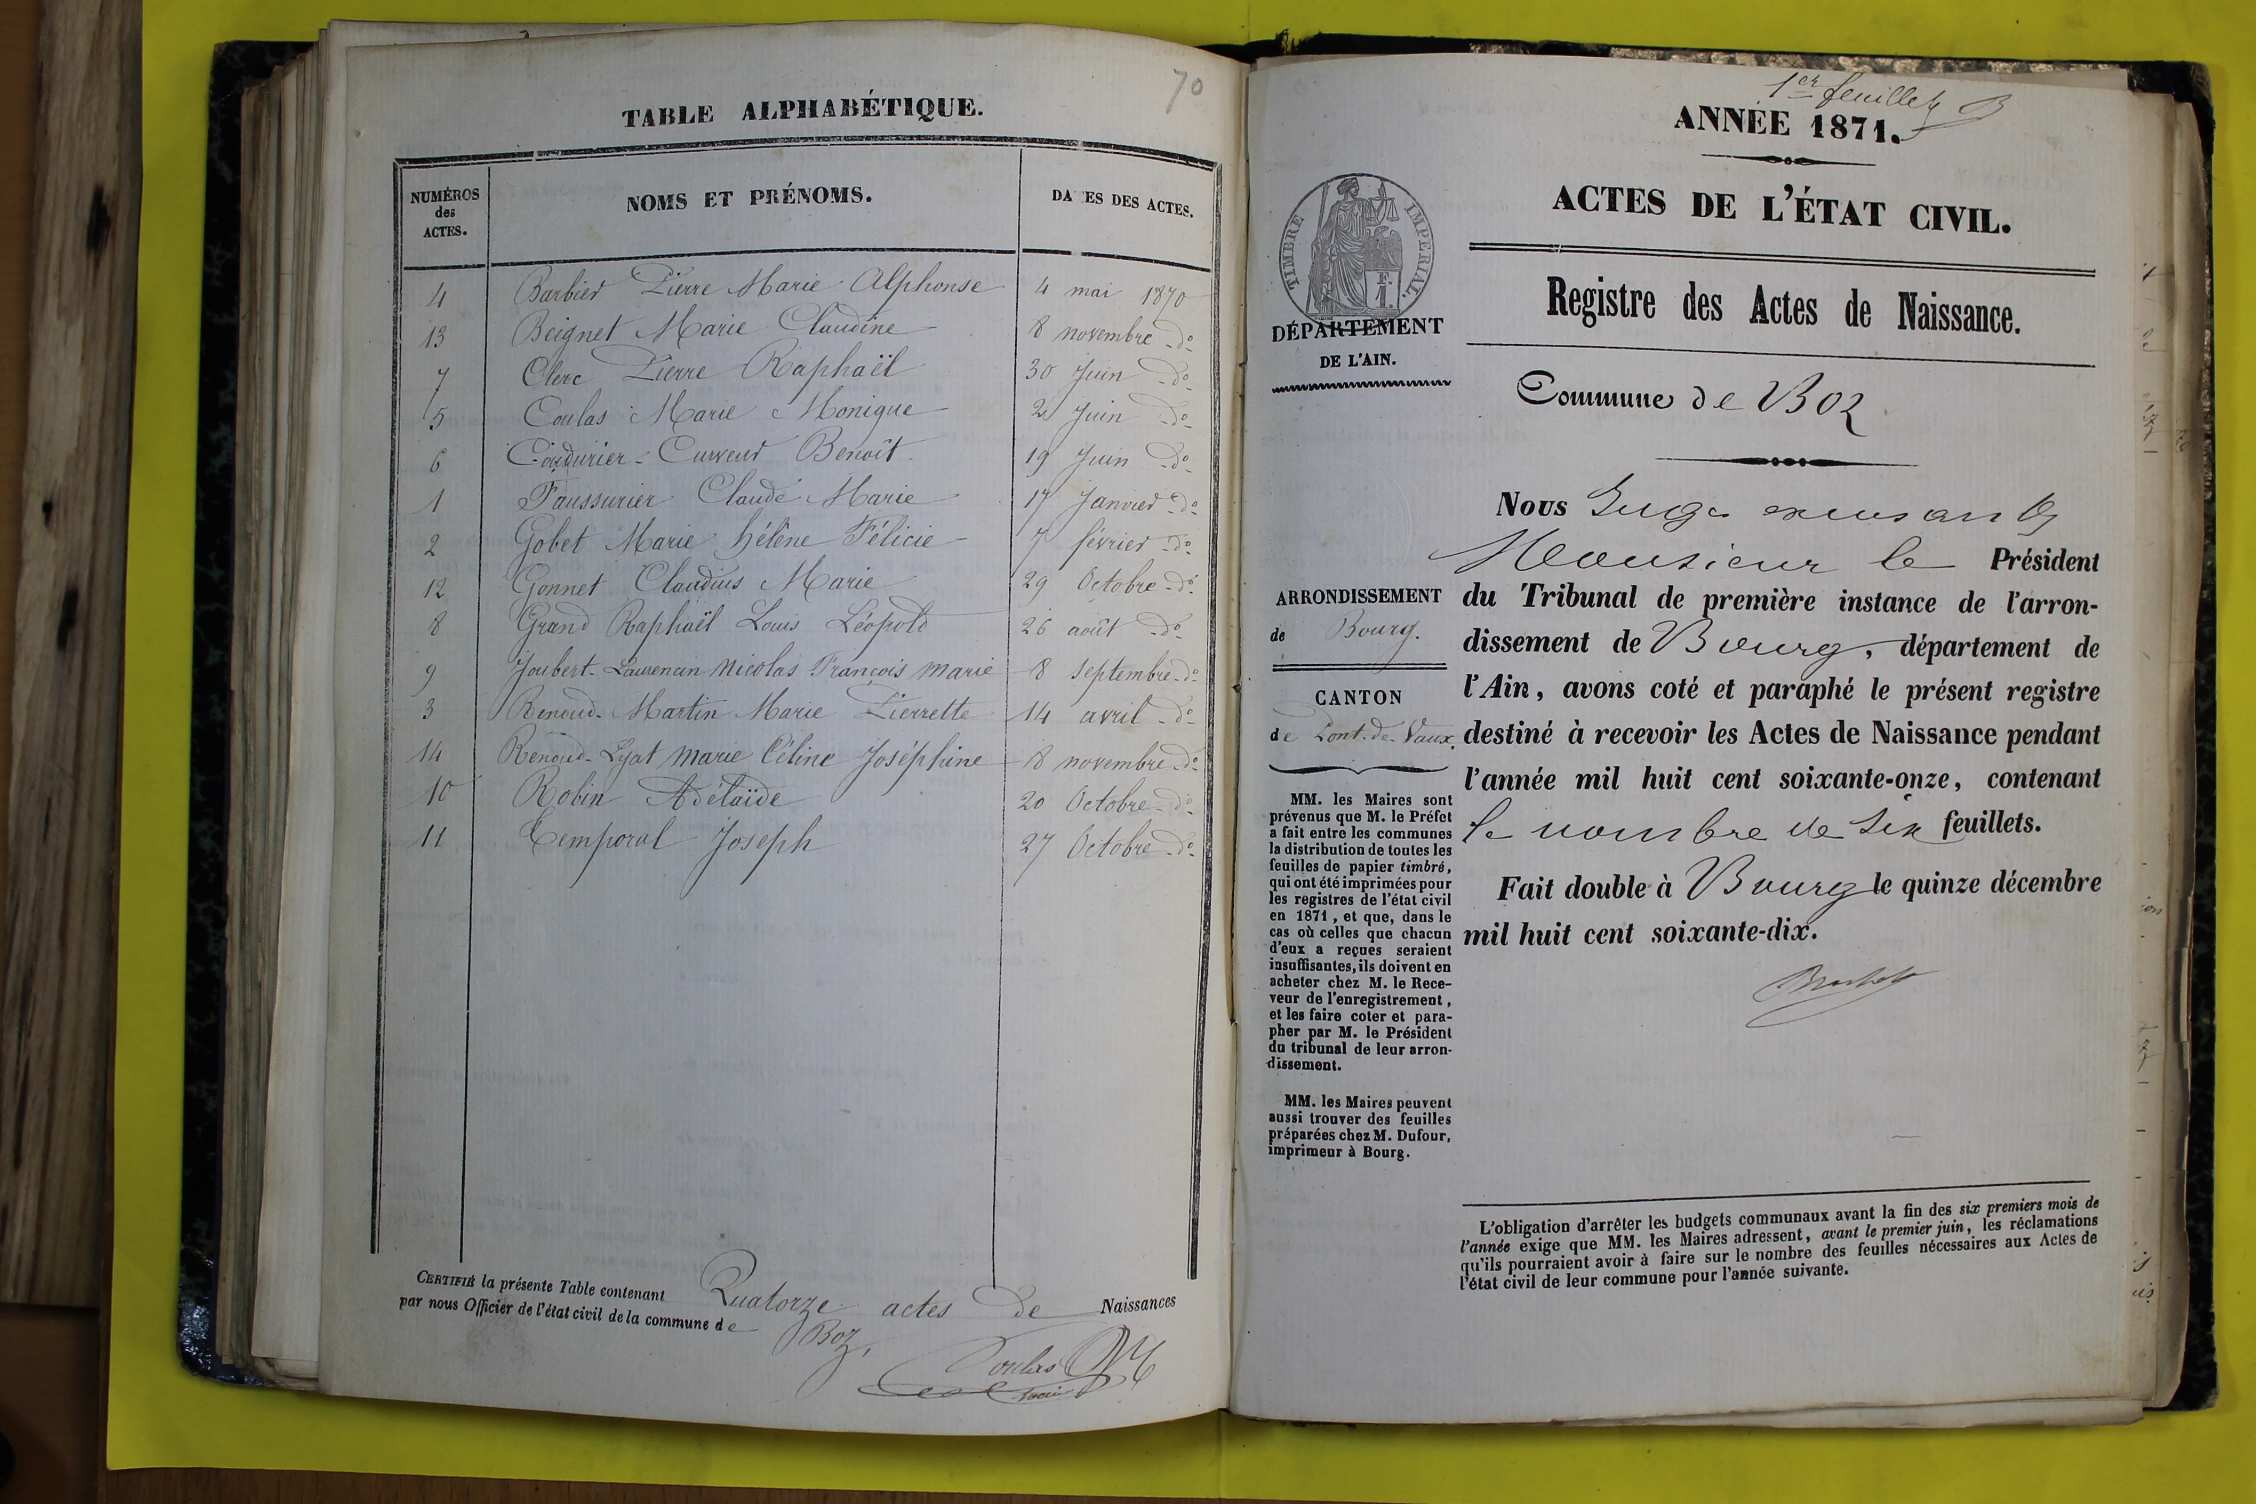 70
TABLE ALPHABÉTIQUE.
NUMÉROS des ACTES. NOMS ET PRÉNOMS. DATES DES ACTES.
4 Barbier Pierre Marie Alphonse 4 mai 1870
13 Beignet Marie Claudine 8 novembre -do-
7 Clerc Pierre Raphaël 30 Juin -do-
5 Coulas Marie Monique 2 Juin -do-
6 Coudurier-Curveur Benoît 19 Juin -do-
1 Faussurier Claude Marie 17 Janvier -do-
2 Gobet Marie Hélène Félicie 7 février -do-
12 Gonnet Claudius Marie 29 Octobre -do-
8 Grand Raphaël Louis Léopold 26 août -do-
9 Joubert-Laurencin Nicolas François Marie 8 Septembre -do-
3 Renoud-Martin Marie Pierrette 14 avril -do-
14 Renoud-Lyat Marie Céline Joséphine 18 novembre -do-
10 Robin Adélaïde 20 Octobre -do-
11 Temporal Joseph 27 Octobre -do-
CERTIFIÉ la présente Table contenant Quatorze actes de Naissances
par nous Officier de l'état civil de la commune de Boz,
Coulas
1er feuillet
ANNÉE 1871.
ACTES DE L'ÉTAT CIVIL.
Registre des Actes de Naissance.
TIMBRE IMPÉRIAL.
DÉPARTEMENT
DE L'AIN.
Commune de Boz
Nous Juge
Monsieur le Président
du Tribunal de première instance de l'arron-
dissement de Bourg, département de
l'Ain, avons coté et paraphé le présent registre
destiné à recevoir les Actes de Naissance pendant
l'année mil huit cent soixante-onze, contenant
le nombre de Six feuillets.
Fait double à Bourg le quinze décembre
mil huit cent soixante-dix.
ARRONDISSEMENT
de Bourg.
CANTON
de Pont-de-Vaux.
MM. les Maires sont
prévenus que M. le Préfet
a fait entre les communes
la distribution de toutes les
feuilles de papier timbré,
qui ont été imprimées pour
les registres de l'état civil
en 1871, et que, dans le
cas où celles que chacun
d'eux a reçues seraient
insuffisantes, ils doivent en
acheter chez M. le Rece-
veur de l'enregistrement,
et les faire coter et para-
pher par M. le Président
du tribunal de leur arron-
dissement.
MM. les Maires peuvent
aussi trouver des feuilles
préparées chez M. Dufour,
imprimeur à Bourg.
L'obligation d'arrêter les budgets communaux avant la fin des six premiers mois de
l'année exige que MM. les Maires adressent, avant le premier juin, les réclamations
qu'ils pourraient avoir à faire sur le nombre des feuilles nécessaires aux Actes de
l'état civil de leur commune pour l'année suivante.